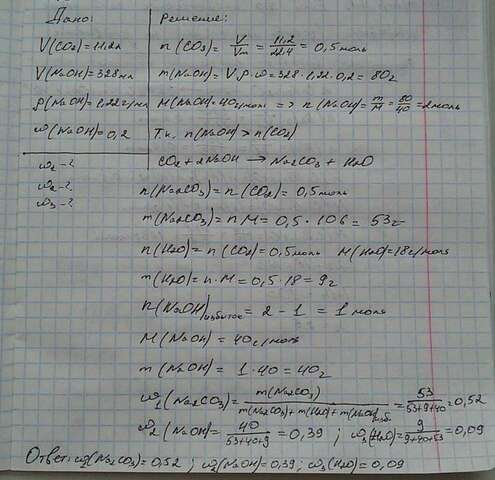 Дано:
V(CO₂)=11,2л
V(NaOH)=328мл
ρ(NaOH)=1,22г/мл
ω(NaOH)=0,2
ω₁-?
ω₂-?
ω₃-?
Решение:
n(CO₂) = V/Vm = 11,2/22,4 = 0,5 моль
m(NaOH) = V·ρ·ω = 328·1,22·0,2 = 80г
M(NaOH)=40г/моль => n(NaOH) = m/M = 80/40 = 2моль
Т.к. n(NaOH) > n(CO₂)
CO₂ + 2NaOH → Na₂CO₃ + H₂O
n(Na₂CO₃) = n(CO₂) = 0,5моль
m(Na₂CO₃) = n·M = 0,5 · 106 = 53г
n(H₂O) = n(CO₂) = 0,5моль M(H₂O)=18г/моль
m(H₂O) = n·M = 0,5·18 = 9г
n(NaOH)избыток = 2 - 1 = 1 моль
M(NaOH) = 40г/моль
m(NaOH) = 1·40 = 40г
ω₁(Na₂CO₃) = m(Na₂CO₃)/m(Na₂CO₃)+m(H₂O)+m(NaOH)изб. = 53/53+9+40 = 0,52
ω₂(NaOH) = 40/53+40+9 = 0,39 ; ω₃(H₂O) = 9/9+40+53 = 0,09
Ответ: ω₁(Na₂CO₃) = 0,52 ; ω₂(NaOH) = 0,39 ; ω₃(H₂O) = 0,09